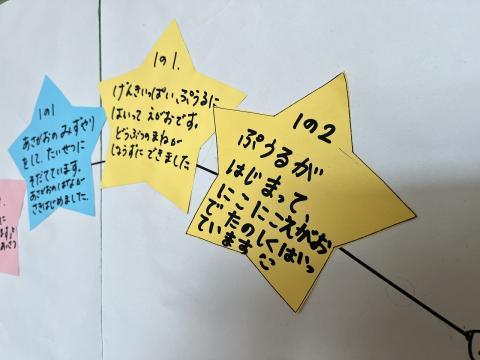 1の1
あさがおのみずやり
をして、たいせつに
そだてています。
あさがおのはなが
さきはじめました。
1の1.
げんきいっぱい、ぷうるに
はいって えがおです。
どうぶつのまねが
じょうずに できました
1の2
ぷうるが
はじまって、
にこにこえがお
でたのしくはいっ
ています